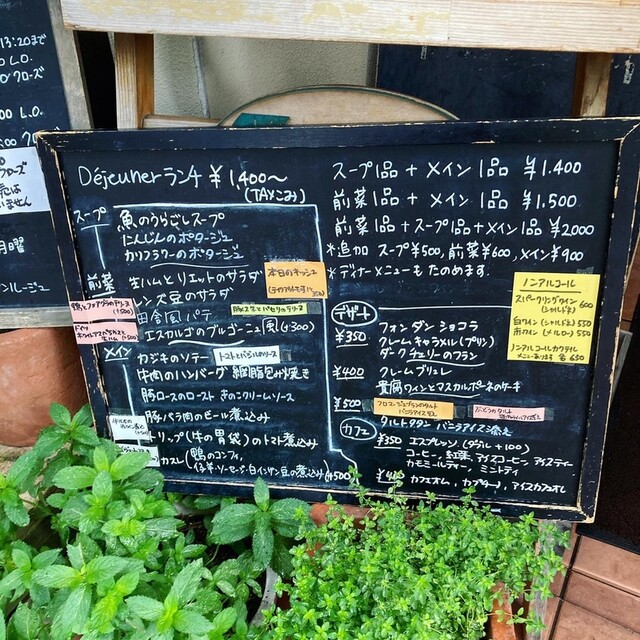 13:20まで
L.O.
クローズ
00 L.O.
クローズ
月曜
Déjeunerランチ ¥1,400〜
(TAXこみ)
スープ
魚のうらごしスープ
にんじんのポタージュ
カリフラワーのポタージュ
前菜
生ハムとリエットのサラダ
レンズ豆のサラダ
田舎風パテ
エスカルゴのブルゴーニュ風(+300)
本日のキッシュ
メイン
カジキのソテー
トマトとバジルのソース
牛肉のハンバーグ 網脂包み焼き
豚ロースのロースト きのこクリームソース
豚バラ肉のビール煮込み
トリップ(牛の胃袋)のトマト煮込み
カスレ(鴨のコンフィ、
仔羊・ソーセージ・白インゲン豆の煮込み)+500
スープ1品 + メイン1品 ¥1.400
前菜1品 + メイン1品 ¥1.500
前菜1品+スープ1品+メイン1品 ¥2000
*追加 スープ¥500, 前菜¥600, メイン¥900
*ディナーメニューもたのめます。
デザート
¥350
フォンダンショコラ
クレームキャラメル(プリン)
ダークチェリーのフラン
¥400
クレームブリュレ
貴腐ワインとマスカルポーネのケーキ
¥500
タルトタタン バニラアイス添え
カフェ
¥350 エスプレッソ(ダブル+100)
コーヒー, 紅茶, アイスコーヒー, アイスティー
カモミールティー, ミントティ
カフェオレ, カプチーノ, アイスカフェオレ
ノンアルコール
スパークリングワイン 600
(シャルドネ)
白ワイン(シャルドネ) 550
赤ワイン(メルロー) 550
ノンアルコールカクテル
メニューあります 各650